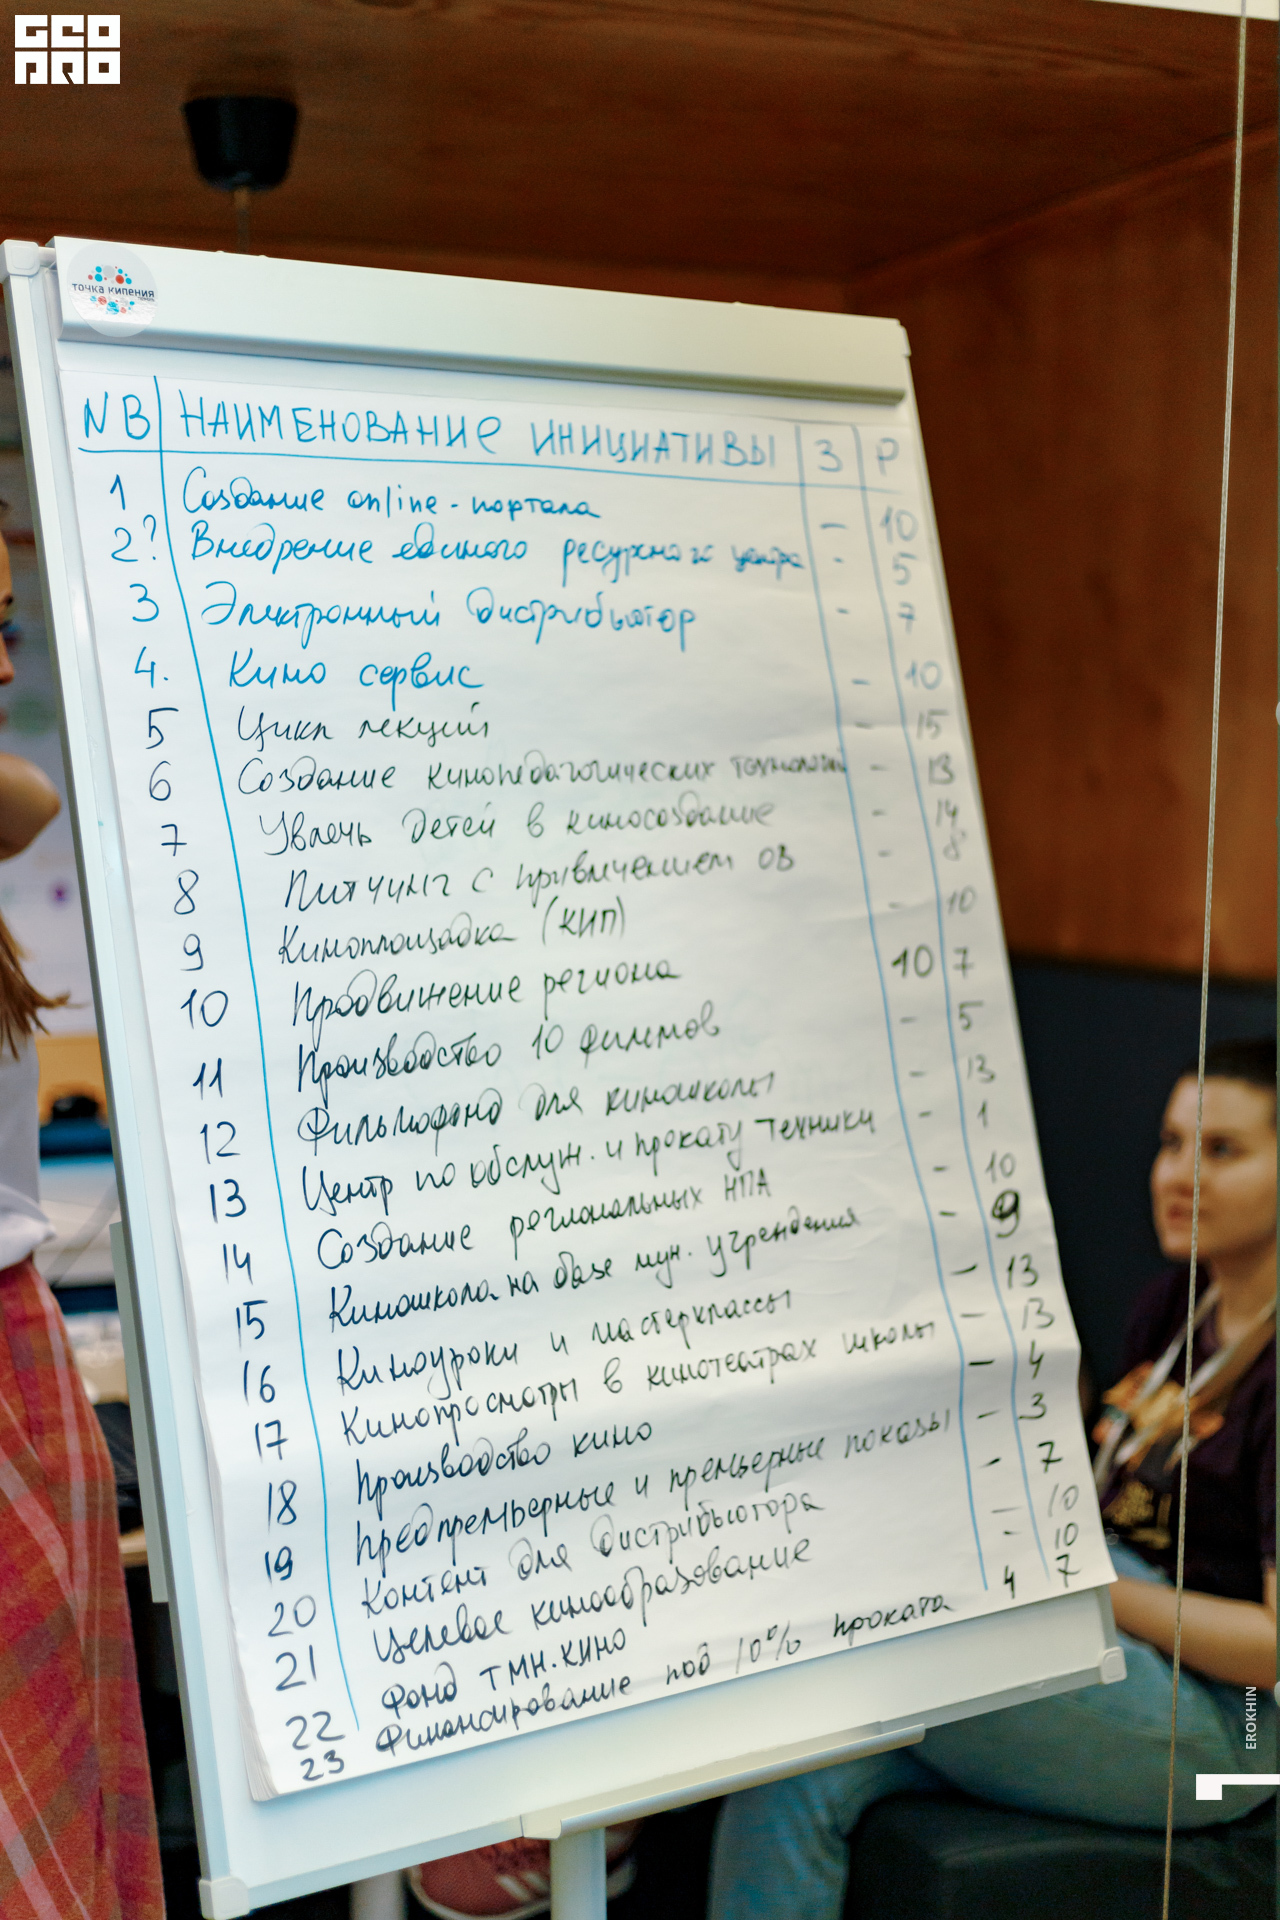 GEO
PRO
точка кипения
NB НАИМЕНОВАНИЕ ИНИЦИАТИВЫ З Р
1 Создание online-портала - 10
2? Внедрение единого ресурсного центра - 5
3 Электронный дистрибьютор - 7
4. Кино сервис - 10
5 Цикл лекций - 15
6 Создание кинопедагогических технологий - 13
7 Увлечь детей в киносоздание - 14
8 Питчинг с привлечением ОВ - 8
9 Киноплощадка (КИП) - 10
10 Продвижение региона 10 7
11 Производство 10 фильмов - 5
12 Фильмофонд для киношколы - 13
13 Центр по обслуж. и прокату техники - 1
14 Создание региональных НПА - 10
15 Киношкола на базе мун. учреждения - 9
16 Киноуроки и мастерклассы - 13
17 Кинопросмотры в кинотеатрах школы - 13
18 Производство кино - 4
19 Предпремьерные и премьерные показы - 3
20 Контент для дистрибьютора - 7
21 Целевое кинообразование - 10
22 Фонд ТМН.КИНО - 10
23 Финансирование под 10% проката 4 7
EROKHIN